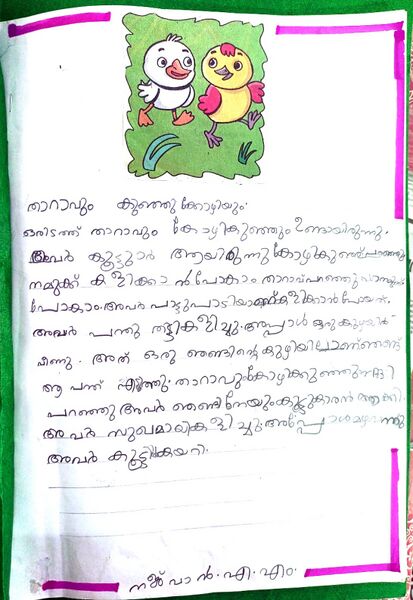 താറാവും കുഞ്ഞു കോഴിയും
ഒരിടത്ത് താറാവും കോഴികുഞ്ഞും ഉണ്ടായിരുന്നു.
അവർ കൂട്ടുകാർ ആയിരുന്നു കോഴികുഞ്ഞ് പറഞ്ഞു
നമുക്ക് കളിക്കാൻ പോകാം താറാവ് പറഞ്ഞു
പോകാം. അവർ പാട്ടുപാടിയാണ് കളിക്കാൻ പോയത്.
അവർ പന്തു തട്ടികളിച്ചു. അപ്പോൾ ഒരു കുഴിയിൽ
വീണു. അത് ഒരു ഞണ്ടിന്റെ കുഴിയിലാണ് ഞണ്ട്
ആ പന്ത് എടുത്തു. താറാവും കോഴികുഞ്ഞും നന്ദി
പറഞ്ഞു അവർ ഞണ്ടിനേയും കൂട്ടുകാരൻ ആക്കി.
അവർ സുഖമായി കളിച്ചു. അപ്പോൾ മഴ വന്നു
അവർ കൂട്ടിൽ കയറി.
എ. എം.